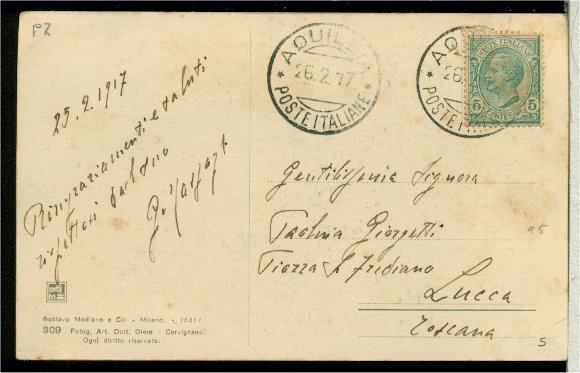 PZ
25.2.1917
Ringraziamenti e saluti
rispettosi
AQUILEIA
26.2.17
POSTE ITALIANE
AQ
26
POSTE ITA
POSTE ITALIANE
5 5
Gentilissima Signora
Paolina Giorgetti
Piazza S Frediano
Lucca
Toscana
Gustavo Modiano e Co. - Milano. - 78357
309 Fotog. Art. Dott. Diem - Cervignano.
Ogni diritto riservato.
5